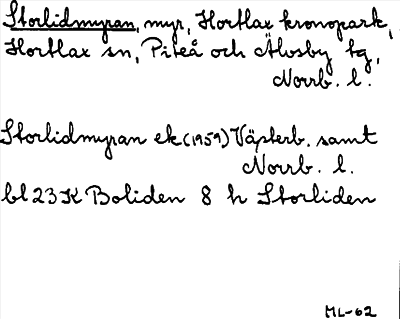 Storlidmyran, myr, Hortlax kronopark,
Hortlax sn, Piteå och Älvsby tg,
Norrb. l.
Storlidmyran ek (1959) Västerb. samt
Norrb. l.
bl 23 K Boliden 8 h Storliden
ML-62